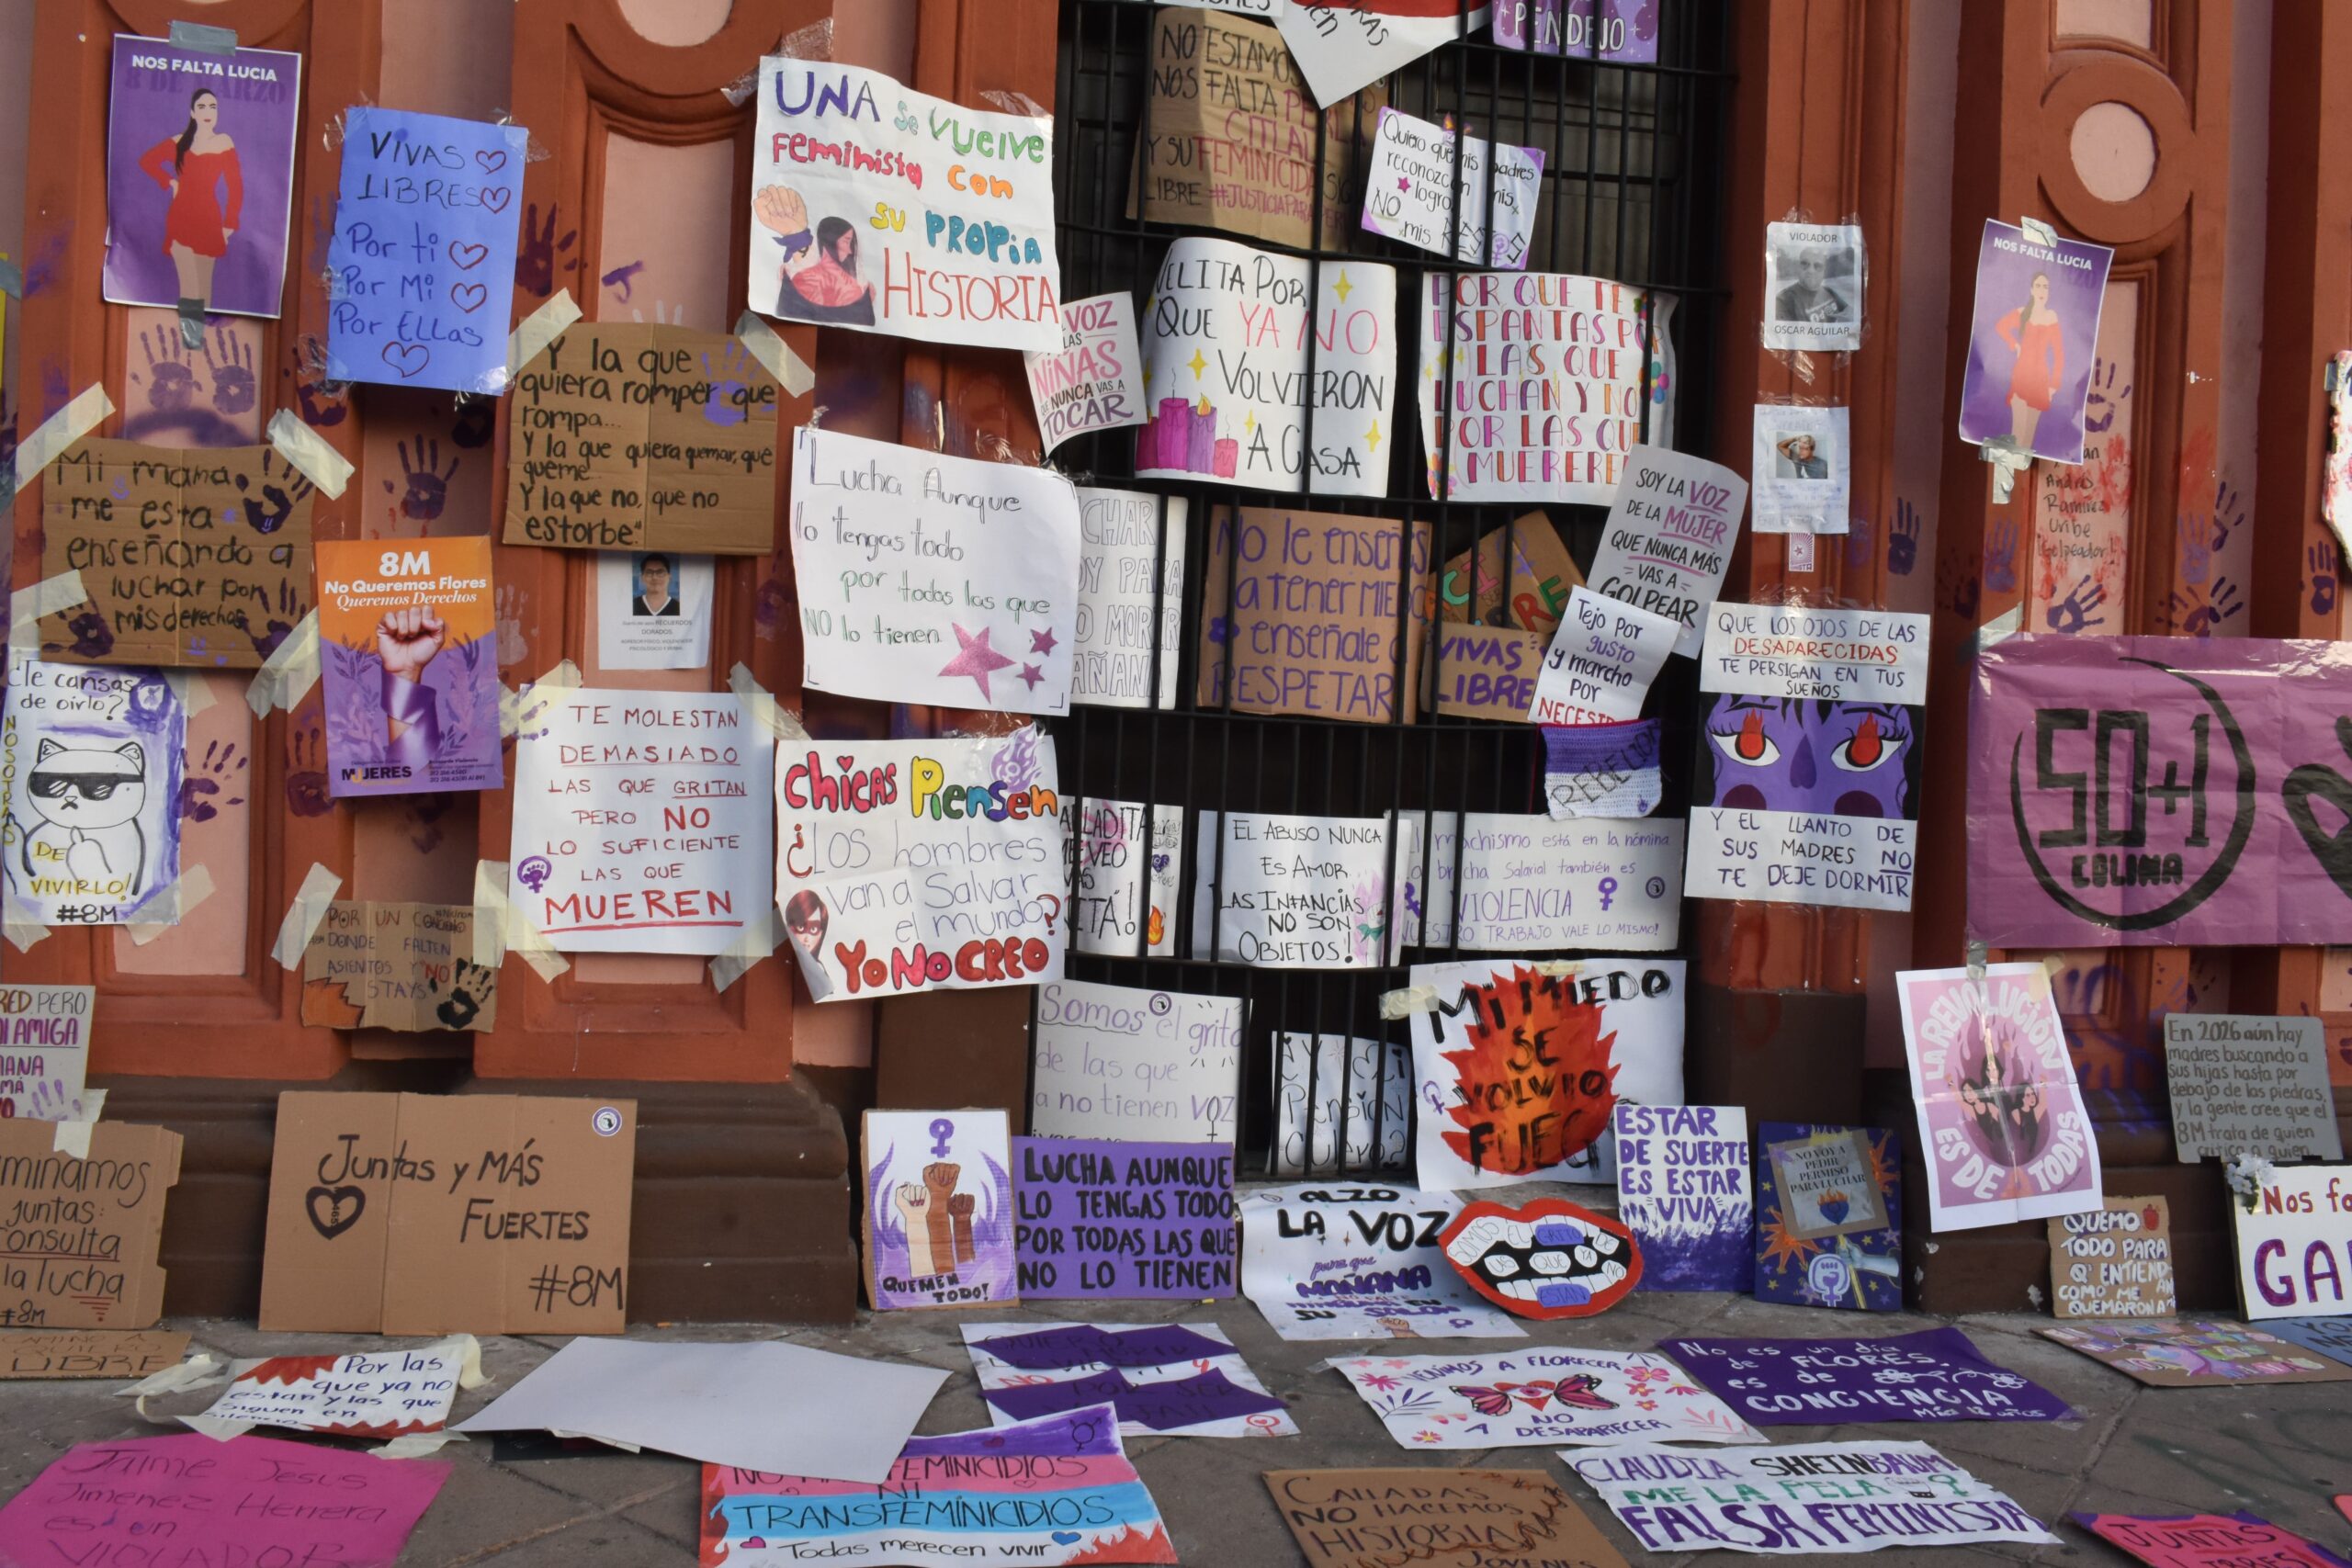 NOS FALTA LUCIA
8 DE MARZO
VIVAS
LIBRES
Por ti
Por Mi
Por Ellas
UNA se vuelve
feminista con
su propia
HISTORIA
NO ESTAMOS
NOS FALTA
Y SU FEMINICIDA
LIBRE
PENDEJO
Quiero que mis padres
reconozcan mis
logros
NO
mis
VOZ
LAS
NIÑAS
QUE NUNCA VAS A
TOCAR
VELITA POR
QUE YA NO
VOLVIERON
A CASA
POR QUE TE
ESPANTAS POR
LAS QUE
LUCHAN Y NO
POR LAS QUE
VIOLADOR
OSCAR AGUILAR
NOS FALTA LUCIA
Andrés
Ramírez
Uribe
Golpeador
Y la que
quiera romper que
rompa...
Y la que quiera quemar, que
queme...
Y la que no, que no
estorbe"
Mi mamá
me esta
enseñando a
luchar por
mis derechos
8M
No Queremos Flores
Queremos Derechos
MUJERES
RECUERDOS
DORADOS,
Lucha Aunque
lo tengas todo
por todas las que
NO lo tienen
CHAR
OY PARA
O MORIR
AÑANA
No le enseñes
a tener MIEDO
enseñale a
RESPETAR
VIVAS
LIBRES
SOY LA VOZ
DE LA MUJER
QUE NUNCA MÁS
VAS A
GOLPEAR
Tejo por
gusto
y marcho
POR
REBELION
QUE LOS OJOS DE LAS
DESAPARECIDAS
TE PERSIGAN EN TUS
SUEÑOS
Y EL LLANTO DE
SUS MADRES NO
TE DEJE DORMIR
50+1
COLIMA
¿Te cansas
de oirlo?
NOSOTRAS
DE
VIVIRLO!
#8M
TE MOLESTAN
DEMASIADO
LAS QUE GRITAN
PERO NO
LO SUFICIENTE
LAS QUE
MUEREN
Chicas Piensen
¿LOS hombres
van a Salvar
el mundo?
YO NO CREO
CALLADITA
ME VEO
MAS
EL ABUSO NUNCA
ES AMOR
LAS INFANCIAS
NO SON
OBJETOS!
machismo está en la nómina
brecha Salarial también es
VIOLENCIA
NUESTRO TRABAJO VALE LO MISMO!
POR UN
DONDE FALTEN
ASIENTOS Y NO
STAYS
RED, PERO
MI AMIGA
Somos el grito
de las que
ya no tienen VOZ
¿Y Mi
Pensión
MI MIEDO
SE
VOLVIO
FUEGO
LA REVOLUCIÓN
ES DE TODAS
En 2026 aún hay
madres buscando a
sus hijas hasta por
debajo de las piedras,
y la gente cree que el
8M trata de quien
critica a quien
minamos
juntas:
la lucha
#8M
Juntas y MÁS
FUERTES
#8M
QUEMEN
TODO!
LUCHA AUNQUE
LO TENGAS TODO
POR TODAS LAS QUE
NO LO TIENEN
ALZO
LA VOZ
para que
MAÑANA
SOMOS EL GRITO DE
LAS QUE YA NO
ESTÁN
ESTAR
DE SUERTE
ES ESTAR
VIVA
NO VOY A
PEDIR
PERMISO
PARA LUCHAR
QUEMO
TODO PARA
Q' ENTIENDAN
COMO ME
QUEMARON A
Nos fa
GA
LIBRE
Por las
que ya no
estan y las que
siguen en
VENIMOS A FLORECER
NO
A DESAPARECER
No es un día
de FLORES,
es de
CONCIENCIA
Jaime Jesus
Jimenez Herrera
es un
VIOLADOR
FEMINICIDIOS
NI
TRANSFEMINICIDIOS
Todas merecen vivir
CALLADAS
NO HACEMOS
HISTORIA
JOVENES
CLAUDIA SHEINBAUM
ME LA PELA
FALSA FEMINISTA
JUNTAS